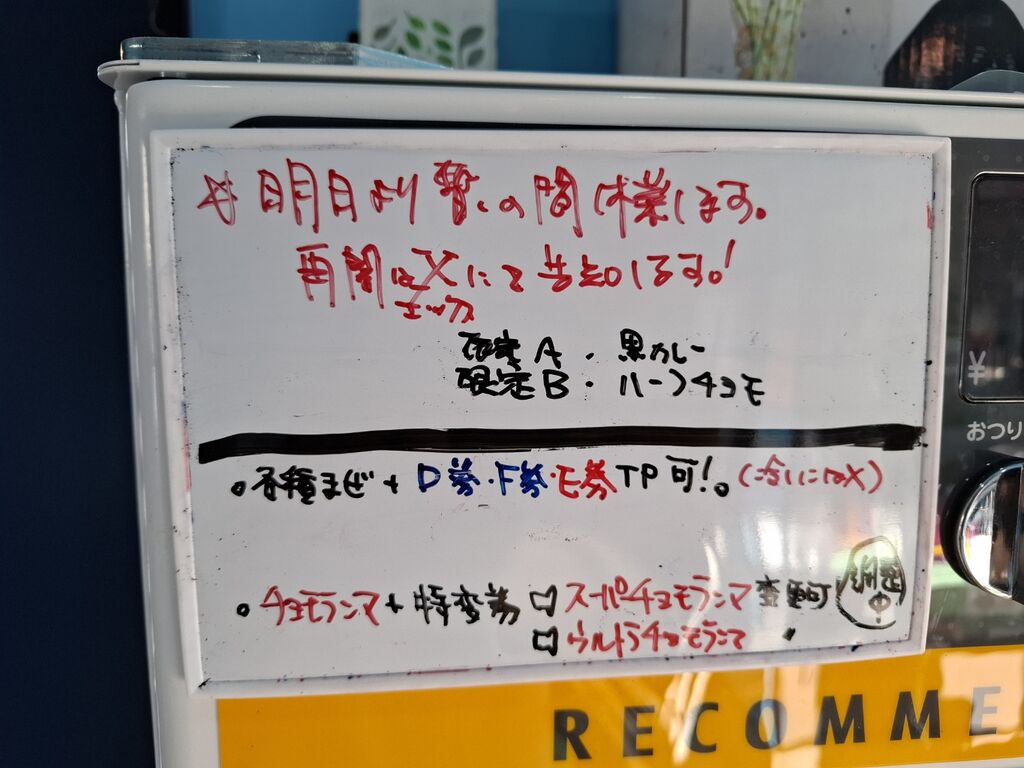 ☆明日より暫くの間休業します。
再開はXにて告知します。!
エックス
限定A・黒カレー
限定B・ハーフチョモ
。各種まぜ+D券・F券・E券TP可!。(冷しにはX)
。チョモランマ+特変券 □スーパーチョモランマ変更可
□ウルトラチョモランマ
中
¥
おつり
RECOMME